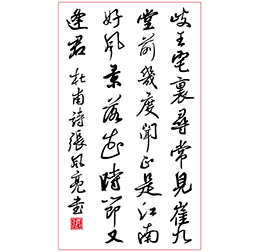 岐王宅裏尋常見崔九
堂前幾度聞正是江南
好風景落花時節又
逢君 杜甫詩張亮書